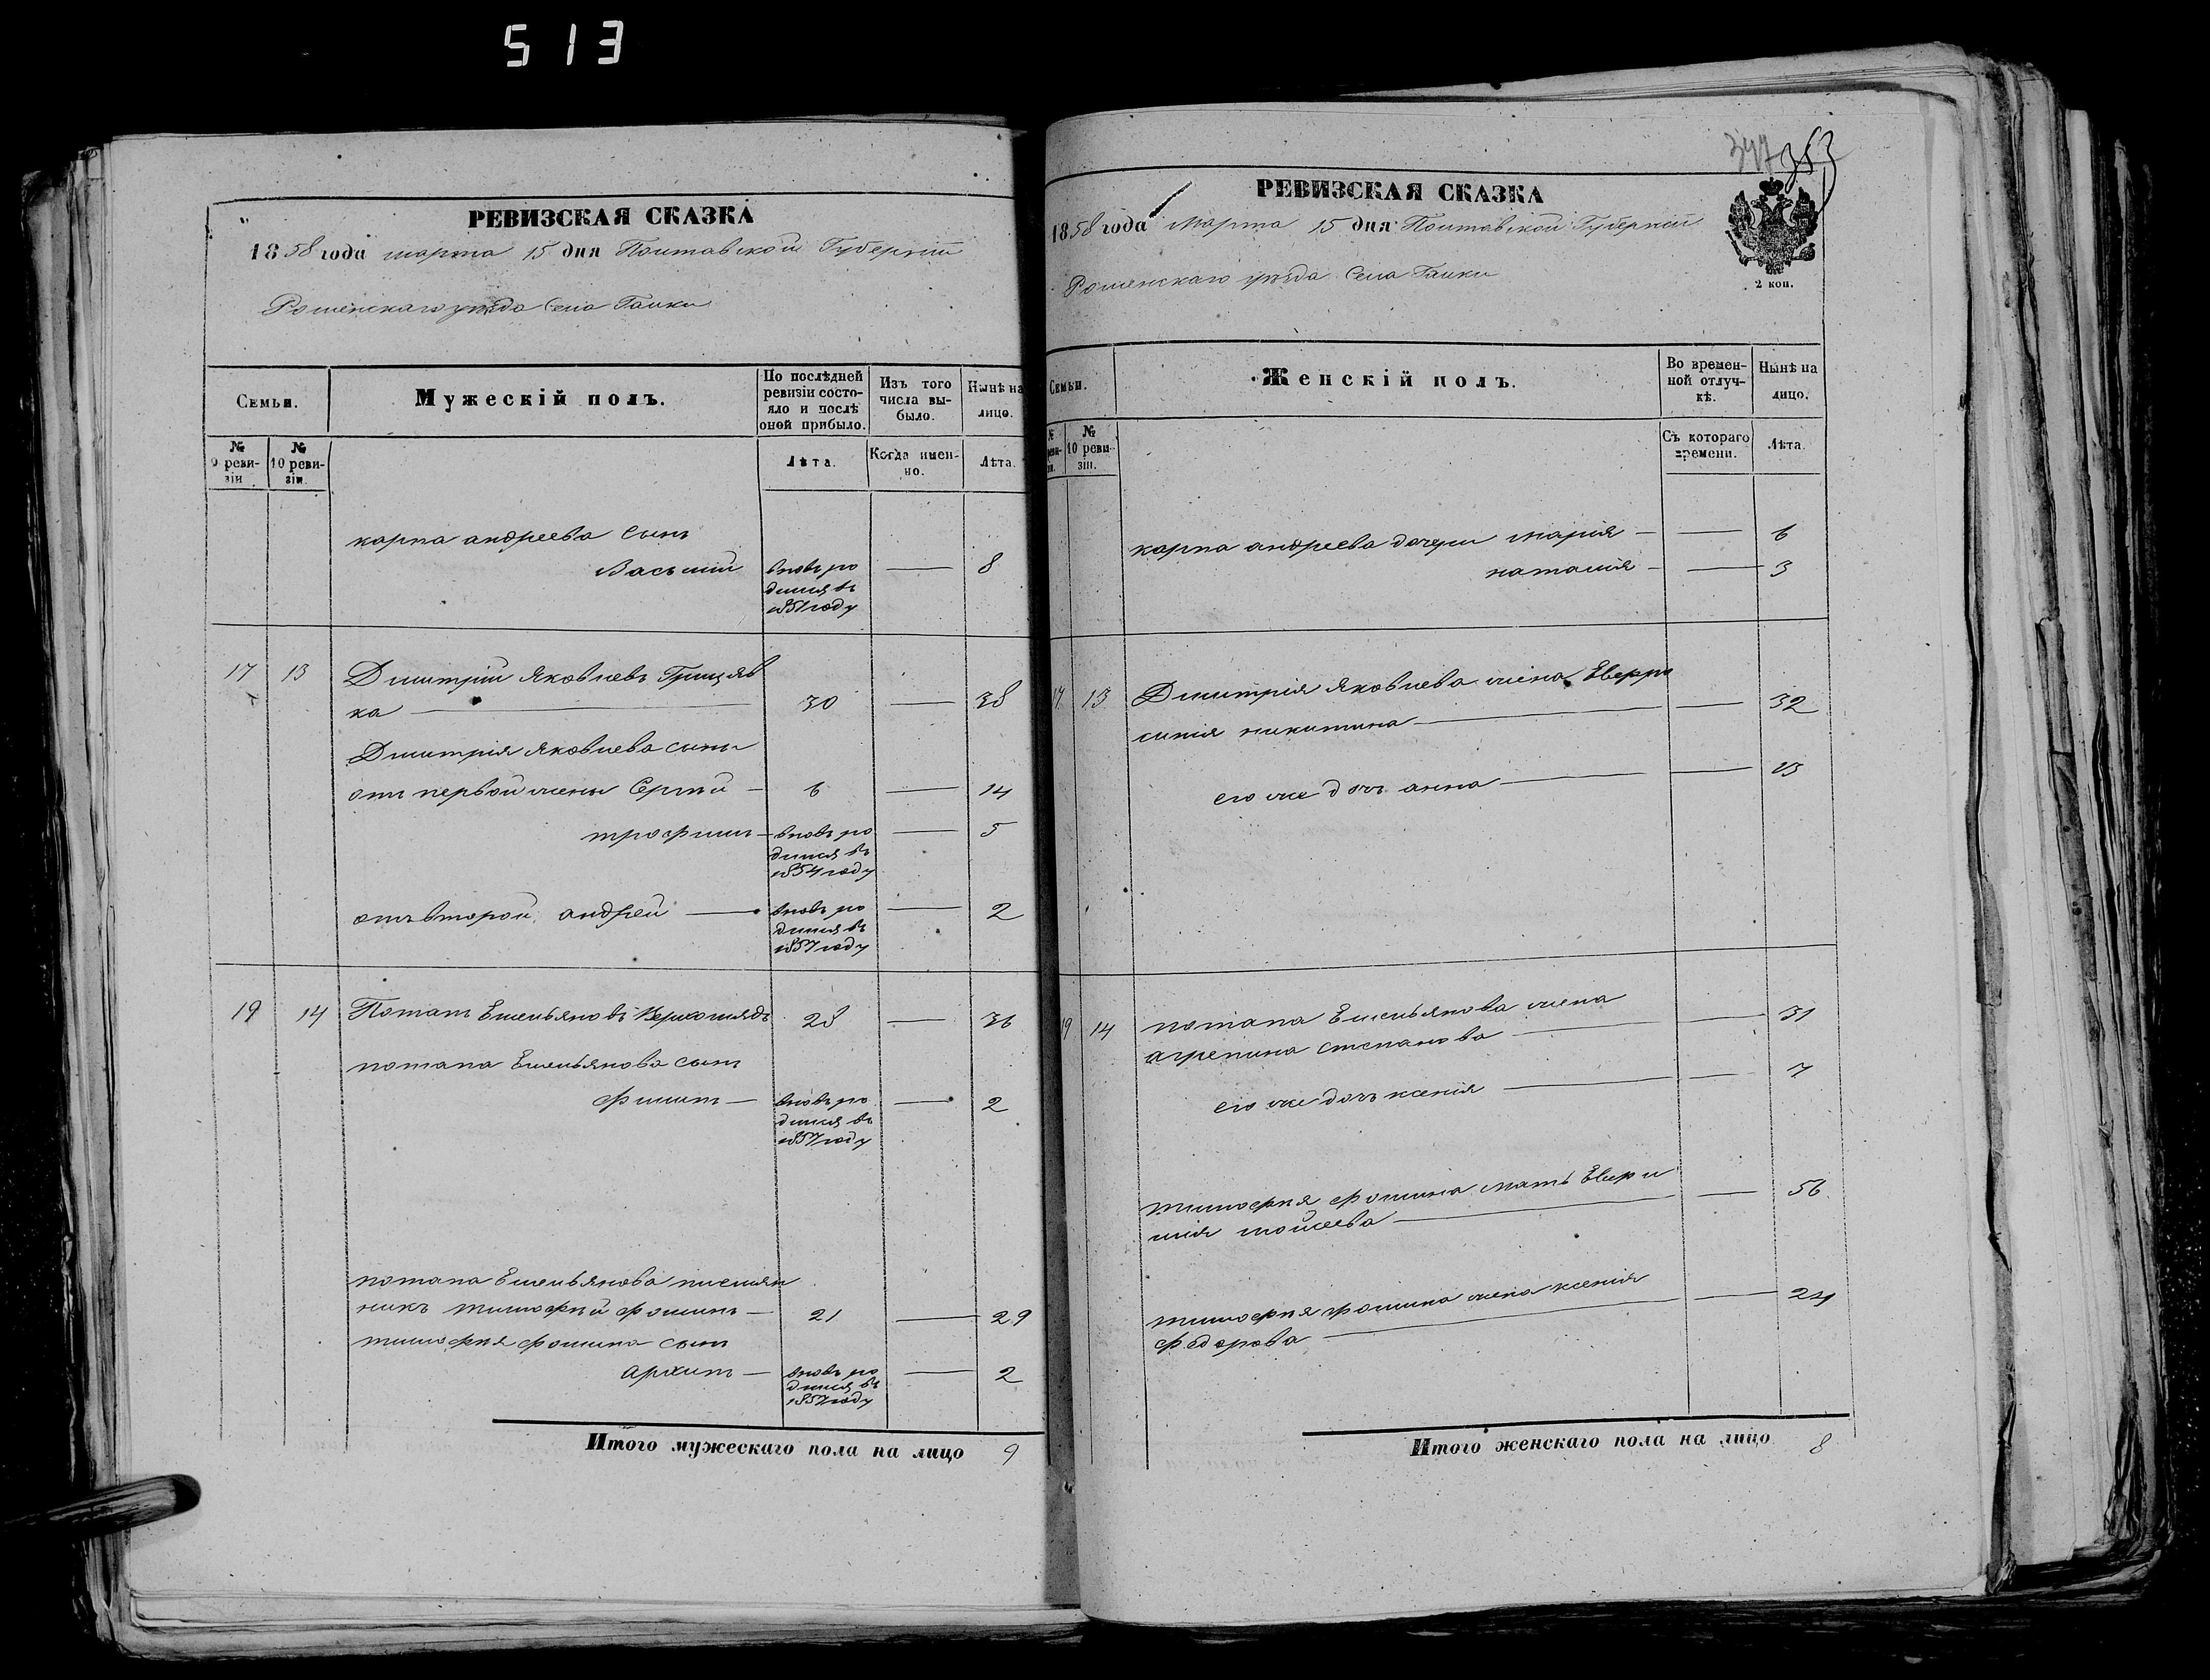 513
РЕВИЗСКАЯ СКАЗКА
1858 года марта 15 дня Полтавской Губерніи
Роменскаго уѣзда Села Галки
Семьи.
Мужескій полъ.
По послѣдней ревизіи состояло и послѣ оной прибыло.
Изъ того числа выбыло.
Нынѣ на лицо.
№ 9 ревизіи
№ 10 ревизіи.
Лѣта.
Когда именно.
Лѣта.
карпа андреева сынъ
Василий вновь родился въ 1851 году — 8
17 13 Дмитрій Яковлевъ Грицяв
ка — 30 — 38
Дмитрія Яковлева сыны
отъ первой жены Сергѣй — 6 — 14
трофимъ — вновь родился въ 1854 году — 5
отъ второй андрей — вновь родился въ 1857 году — 2
19 14 Потапъ Емельяновъ 28 — 36
потапа Емельянова сынъ
филипъ — вновь родился въ 1857 году — 2
потапа Емельянова племян
никъ тимофѣй фоминъ — 21 — 29
тимофѣя фомина сынъ
архипъ — вновь родился въ 1857 году — 2
Итого мужескаго пола на лицо 9
347 353
РЕВИЗСКАЯ СКАЗКА
1858 года Марта 15 дня Полтавской Губерніи
Роменскаго уѣзда Села Галки
2 коп.
Семьи.
Женскій полъ.
Во временной отлучкѣ.
Нынѣ на лицо.
№ ревизіи.
№ 10 ревизіи.
Съ котораго времени.
Лѣта.
карпа андреева дочери марія — — 6
наталія — — 3
17 13 Дмитрія Яковлева жена Евфро
синія никитина — — 32
его же дочь анна — — 13
19 14 потапа Емельянова жена
агрепина степанова — — 31
его же дочь ксенія — — 7
тимофѣя фомина мать Евфи
мія мойсеева — — 56
тимофѣя фомина жена ксенія
федорова — — 24
Итого женскаго пола на лицо 8